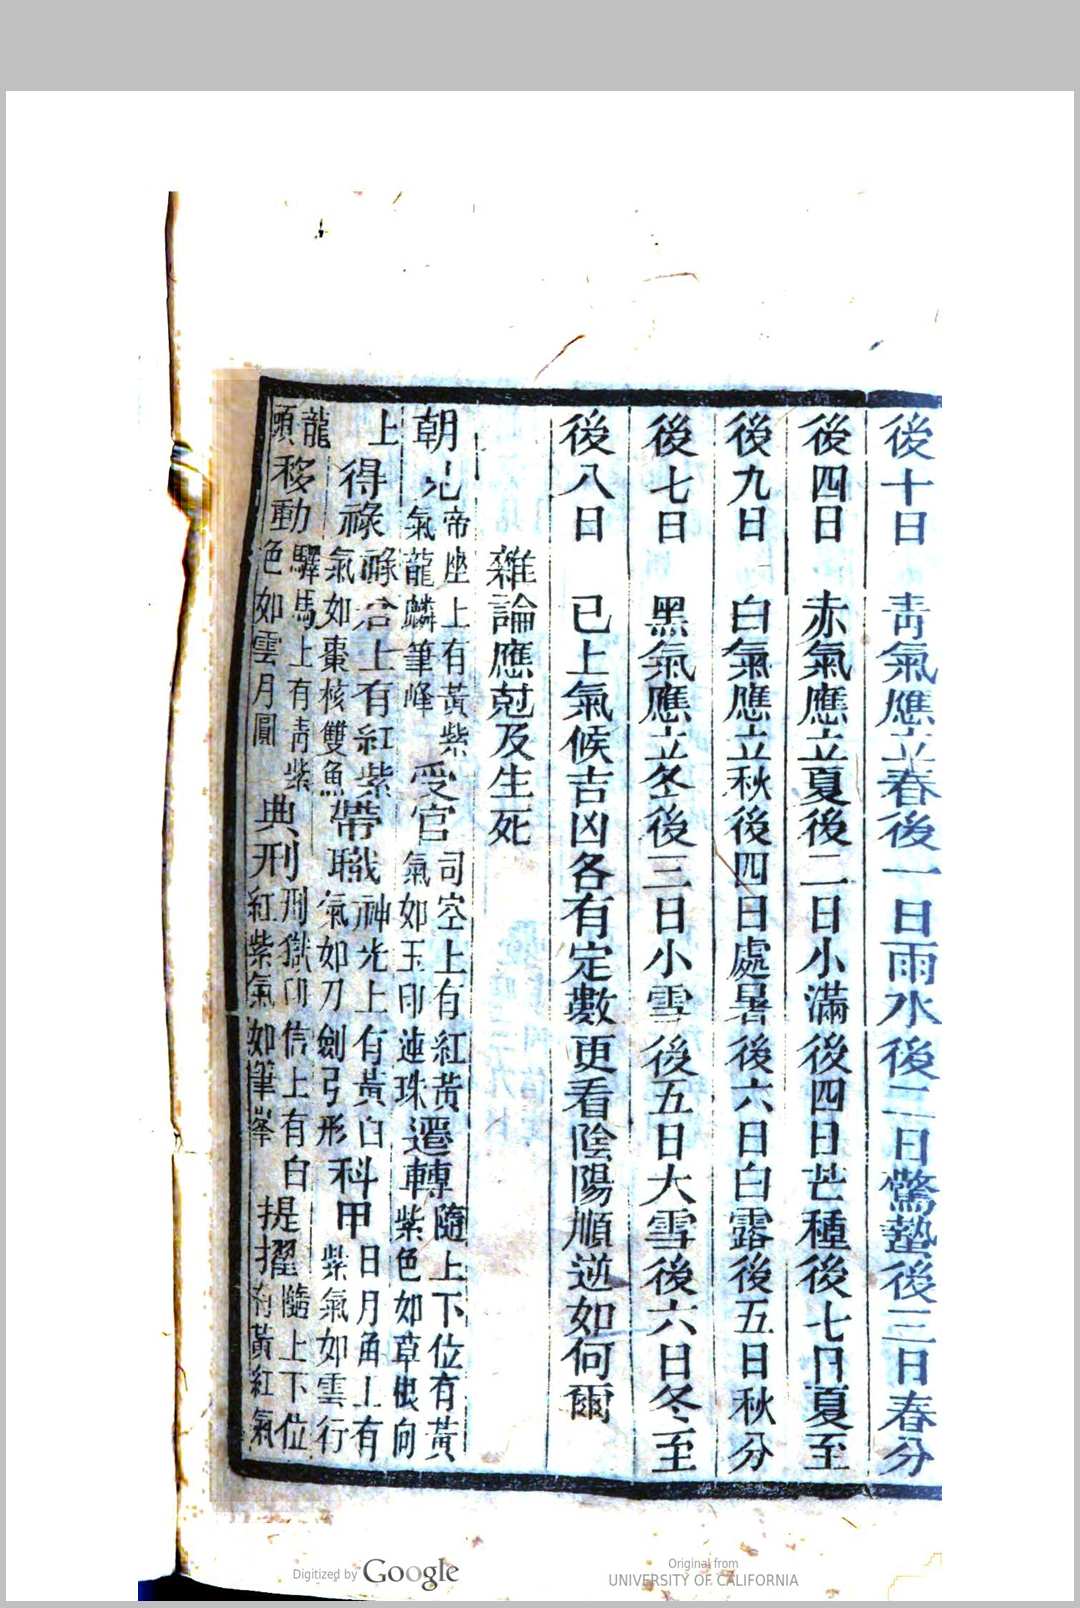 後十日　靑氣應立春後一日雨水後二日驚蟄後三日春分
後四日　赤氣應立夏後二日小滿後四日芒種後七日夏至
後九日　白氣應立秋後四日處暑後六日白露後五日秋分
後七日　黑氣應立冬後三日小雪後五日大雪後六日冬至
後八日　已上氣候吉凶各有定數更看陰陽順逆如何爾
雜論應尅及生死
朝元 帝座上有黃紫氣龍麟筆峰 受官 司空上有紅黃氣如玉印連珠 遷轉 隨上下位有黃紫色如草根向
上 得祿 祿倉上有紅紫氣如棗核雙魚 帶職 神光上有黃白氣如刀劍弓形 科甲 日月角上有紫氣如雲行
龍頭 移動 驛馬上有靑紫色如雲月圓 典刑 刑獄印信上有白紅紫氣如筆峯 提擢 隨上下位有黃紅氣
Digitized by Google
Original from
UNIVERSITY OF CALIFORNIA